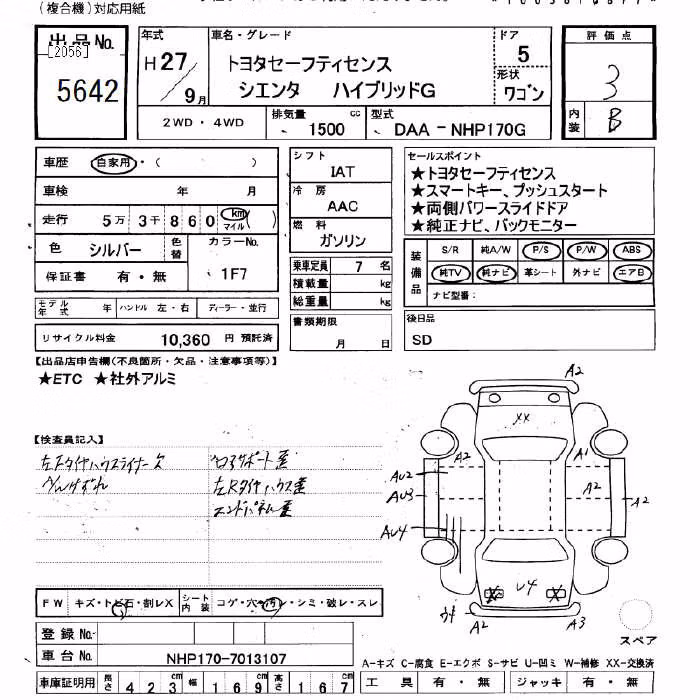 (複合機)対応用紙
出品No.
[2056]
5642
年式
H27/9月
車名・グレード
トヨタセーフティセンス
シエンタ ハイブリッドG
ドア
5
形状
ワゴン
評価点
3
内装
B
2WD・4WD
排気量
1500 cc
型式
DAA-NHP170G
車歴
自家用・( )
車検 年 月
走行 5万3千860 km マイル ( )
色
シルバー
色替
カラーNo.
1F7
保証書 有・無
モデル年式 年
ハンドル 左・右
ディーラー・並行
リサイクル料金 10,360 円 預託済
シフト
IAT
冷房
AAC
燃料
ガソリン
乗車定員 7 名
積載量 kg
総重量 kg
書類期限
月 日
セールスポイント
★トヨタセーフティセンス
★スマートキー、プッシュスタート
★両側パワースライドドア
★純正ナビ、バックモニター
装備品
S/R 純A/W P/S P/W ABS
純TV 純ナビ 革シート 外ナビ エアB
ナビ型番:
後日品
SD
【出品店申告欄(不良箇所・欠品・注意事項等)】
★ETC ★社外アルミ
【検査員記入】
左Fタイヤハウスライナー欠
左Rタイヤハウス歪
エンドパネル歪
A2
XX
A2
A1
AU2
AU3
A2
A2
AU4
U4
X
X
A2
A3
スペア
FW キズ・トビ石・割レX
シート内装 コゲ・穴・汚レ・シミ・破レ・スレ
登録No.
車台No. NHP170-7013107
車庫証明用 長さ 423 cm 幅 169 cm 高さ 167 cm
A-キズ C-腐食 E-エクボ S-サビ U-凹ミ W-補修 XX-交換済
工具 有・無 ジャッキ 有・無